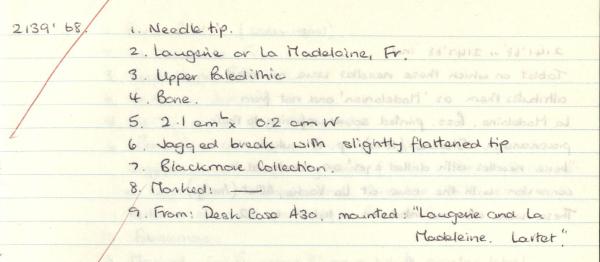 2139' 68. 1. Needle tip.
2. Laugerie or La Madeleine, Fr.
3. Upper Paleolithic
4. Bone.
5. 2.1 cm L x 0.2 cm W
6. Jagged break with slightly flattened tip
7. Blackmore Collection.
8. Marked: —
9. From: Desk Case A30, mounted: "Laugerie and La
Madeleine. Lartet."